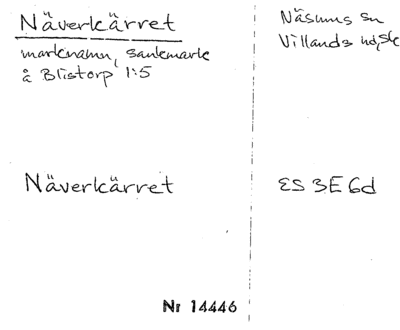 Näverkärret
marknamn, sankmark
å Blistorp 1:5
Näsums sn
Villands hd, Sk
Näverkärret
ES 3E6d
Nr 14446